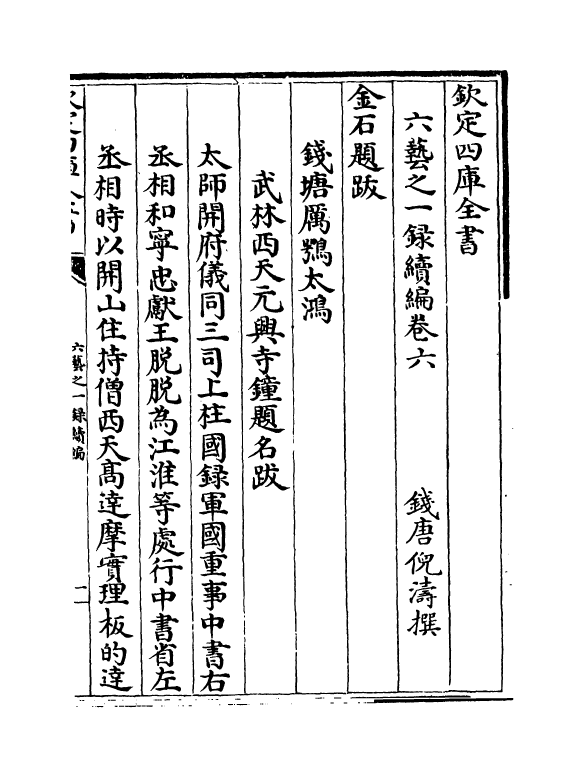 欽定四庫全書
六藝之一録續編卷六　錢唐倪濤撰
金石題跋
錢塘厲鶚太鴻
武林西天元興寺鐘題名跋
太師開府儀同三司上柱國録軍國重事中書右
丞相和寧忠獻王脱脱為江淮等處行中書省左
丞相時以開山住持僧西天高達摩實理板的達
六藝之一録續編